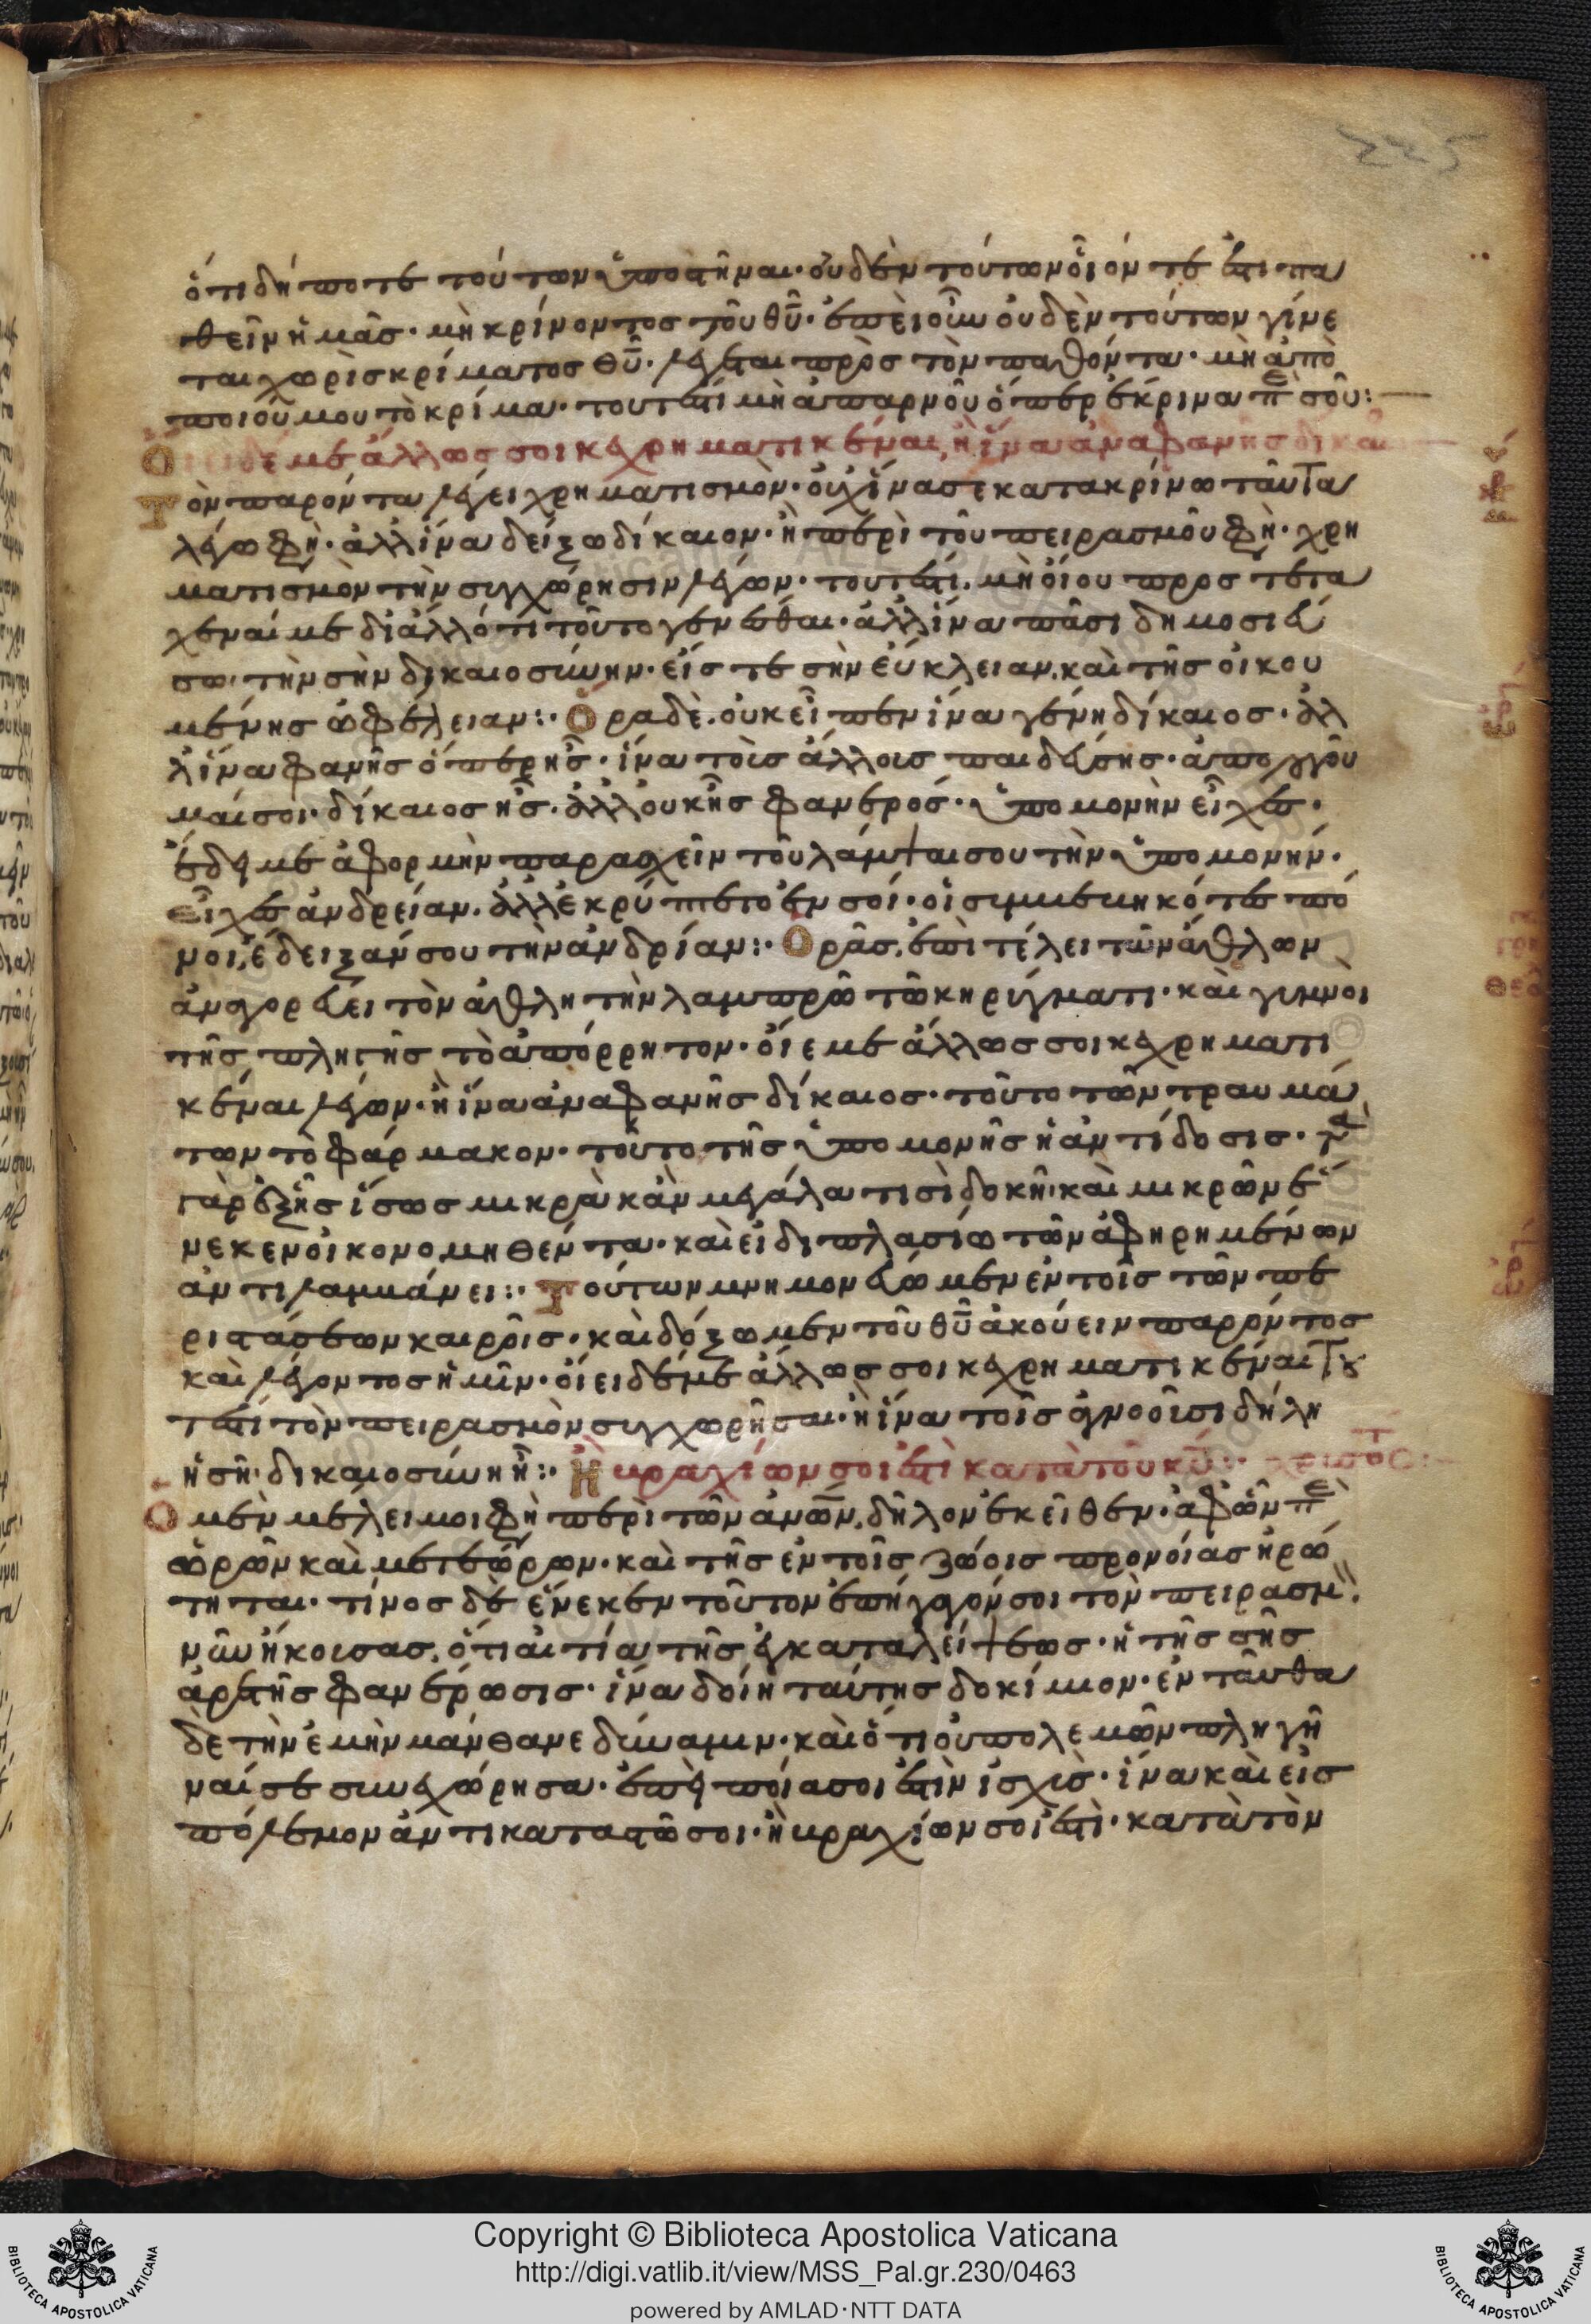 225
ὁτιδήποτε τούτων ὑποστῆναι· οὐδὲν τούτων οἷόν τε ἐστι πα
θεῖν ἡμᾶς· μὴ κρίνοντος τοῦ θυ· ἐπεὶ οὖν οὐδὲν τούτων γίνε
ται χωρὶς κρίματος θυ· λέγεται πρὸς τὸν παθόντα· μὴ ἀπο
ποιοῦ μου τὸ κρίμα· τουτέστι μὴ ἀπαρνοῦ ὅπερ ἔκρινα περὶ σοῦ:
Οἴει δέ με ἄλλως σοι κεχρηματικέναι, ἢ ἵνα ἀναφανῇς δίκαι
Τὸν παρόντα λέγει χρηματισμόν· οὐχ ἵνα σε κατακρίνω ταῦτα
λέγω φη· ἀλλ' ἵνα δείξω δίκαιον· ἢ περὶ τοῦ πειρασμοῦ φη· χρη
ματισμὸν τὴν συγχώρησιν λέγων· τουτέστι· μὴ οἴου προστετα
χέναι με δι' ἄλλό τι τοῦτο γενέσθαι· ἀλλ' ἵνα πᾶσι δημοσιεύ
σω τὴν σὴν δικαιοσύνην· εἴς τε σὴν εὔκλειαν, καὶ τῆς οἰκου
μένης ὠφέλειαν:· Ὅρα δὲ· οὐκ εἶπεν ἵνα γένη δίκαιος· ἀλ
λ' ἵνα φανῇς ὅπερ ἦς· ἵνα τοῖς ἄλλοις παιδεύσῃς· ἀπολογοῦ
μαί σοι· δίκαιος ἦς· ἀλλ' οὐκ ἦς φανερός· ὑπομονὴν εἶχες·
ἔδει με ἀφορμὴν παρασχεῖν τοῦ λάμψαι σου τὴν ὑπομονήν·
εἶχες ἀνδρείαν· ἀλλ' ἐκρύπτετο ἐν σοί· οἱ συμβεβηκότες πό
νοι, ἔδειξάν σου τὴν ἀνδρίαν:· Ὁρᾷς, ἐπὶ τέλει τῶν ἄθλων
ἀναγορεύει τὸν ἀθλητὴν λαμπρῶ τῶ κηρύγματι· καὶ γυμνοῖ
τῆς πληγῆς τὸ ἀπόρρητον· οἴει με ἄλλως σοι κεχρηματι
κέναι λέγων· ἢ ἵνα ἀναφανῇς δίκαιος· τοῦτο τῶν τραυμά
των τὸ φάρμακον· τοῦτο τῆς ὑπομονῆς ἡ ἀντίδοσις· τὰ
γὰρ ἑξῆς ἴσως μικρὰ κἂν μεγάλα τισὶ δοκῆ· καὶ μικρῶν ἕ
νεκεν οἰκονομηθέντα· καὶ εἰ διπλασίω τῶν ἀφηρημένων
ἀντιλαμβάνει:· Τούτων μνημονεύωμεν ἐν τοῖς τῶν πε
ριστάσεων καιροῖς· καὶ δόξωμεν τοῦ θυ ἀκούειν παρόντος
καὶ λέγοντος ἡμῖν· οἴει δέ με ἄλλως σοι κεχρηματικέναι του
τέστι τὸν πειρασμὸν συγχωρῆσαι· ἢ ἵνα τοῖς ἀγνοοῦσι δήλη
ἡ σὴ δικαιοσύνη ᾖ:· Ἢ βραχίων σοι ἐστὶ κατὰ τοῦ κυ:·
Ὅ μὲν μέλει μοι φη περὶ τῶν ἀνων, δῆλον ἐκεῖθεν· ἀφ' ὧν περὶ
ὡρῶν καὶ μετεώρων· καὶ τῆς ἐν τοῖς ζώοις προνοίας ἠρώ
τηται· τίνος δὲ ἕνεκεν τοῦτον ἐπήγαγόν σοι τὸν πειρασμὸν
νῦν ἤκουσας, ὅτι αἰτία τῆς ἐγκαταλείψεως· ἡ τῆς σῆς
ἀρετῆς φανέρωσις· ἵνα δοίη ταύτης δοκίμιον· ἐνταῦθα
δὲ τὴν ἐμὴν μάνθανε δύναμιν· καὶ ὅτι οὐ πολεμῶν πληγῆ
ναί σε συνεχώρησα· ἐπεὶ ποία σοι ἐστὶν ἰσχύς· ἵνα καὶ εἰς
πόλεμον ἀντικαταστῶ σοι· ἢ βραχίων σοί ἐστὶ· κατὰ τὸν
Copyright © Biblioteca Apostolica Vaticana
http://digi.vatlib.it/view/MSS_Pal.gr.230/0463
powered by AMLAD·NTT DATA
BIBLIOTECA APOSTOLICA VATICANA
BIBLIOTECA APOSTOLICA VATICANA